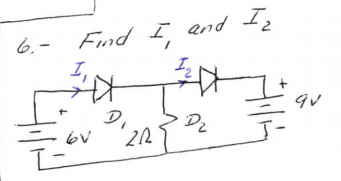 6.- Find I₁ and I₂
I₁ I₂
+ D₁ 2Ω D₂ +
6V 9V
- -